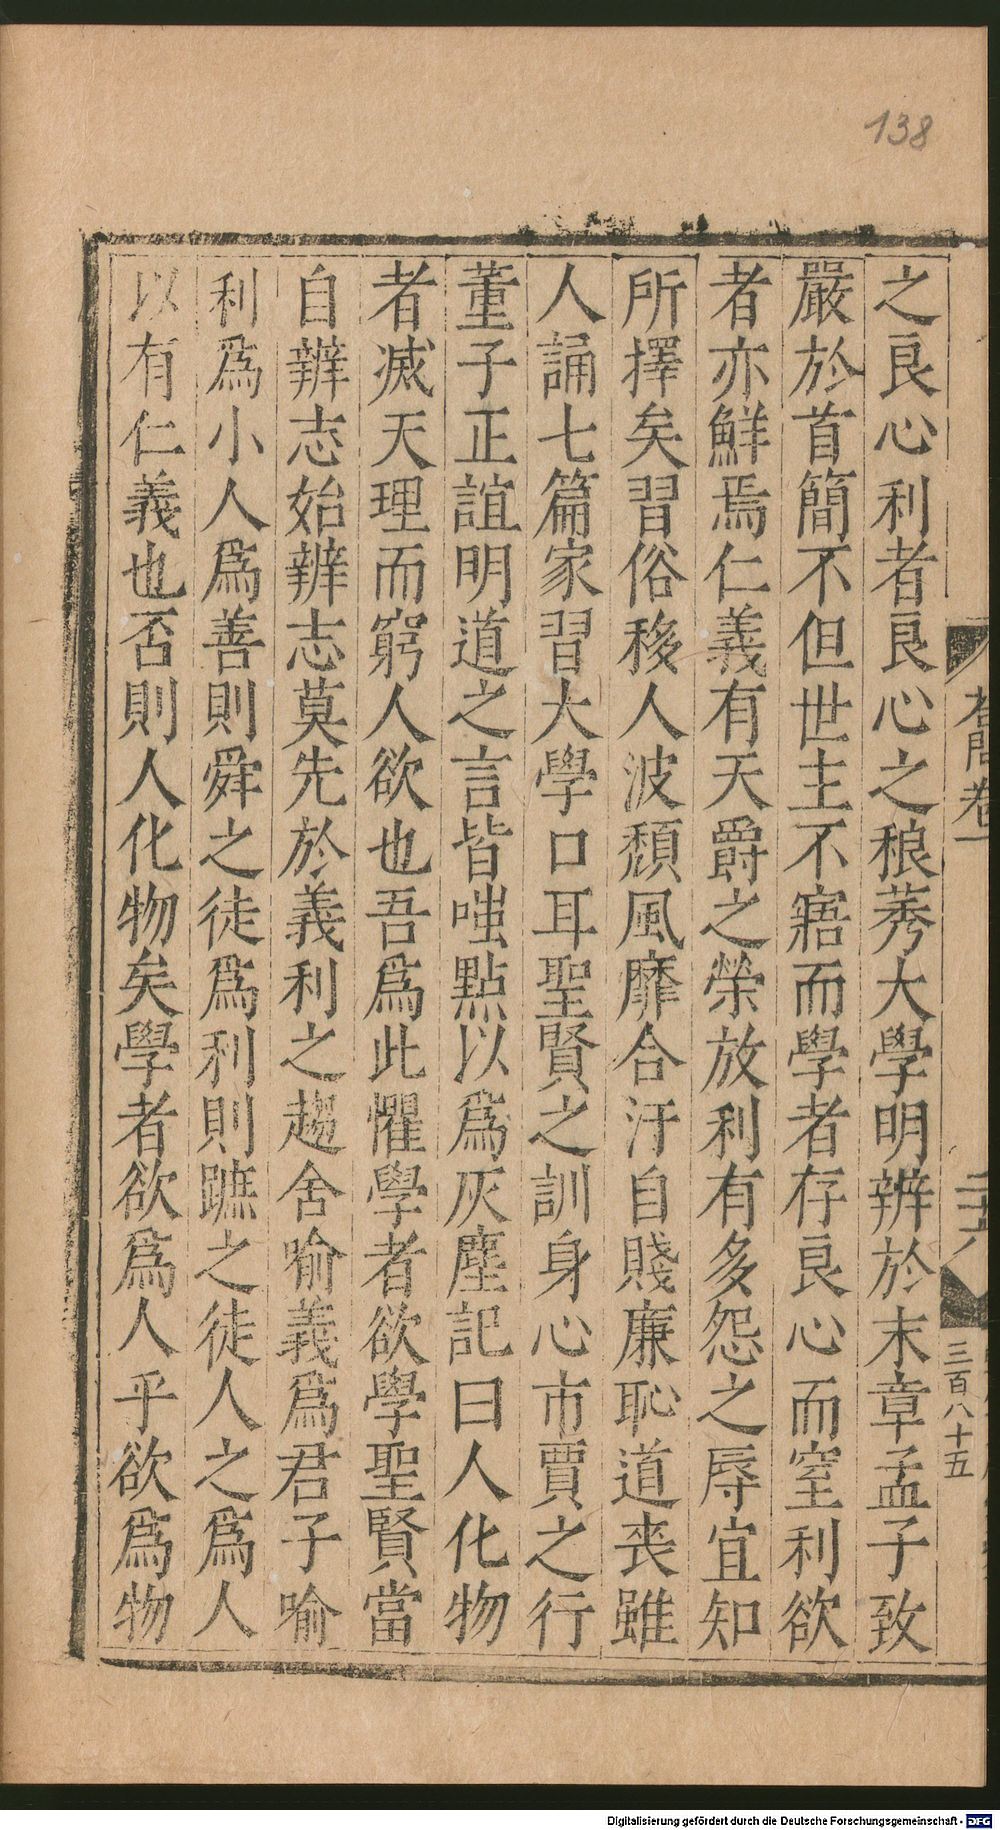 138
之良心利者良心之稂莠大學明辨於末章孟子致
嚴於首簡不但世主不寤而學者存良心而窒利欲
者亦鮮焉仁義有天爵之榮放利有多怨之辱宜知
所擇矣習俗移人波頹風靡合汙自賤廉恥道喪雖
人誦七篇家習大學口耳聖賢之訓身心市賈之行
董子正誼明道之言皆嗤點以為灰塵記曰人化物
者滅天理而窮人欲也吾為此懼學者欲學聖賢當
自辨志始辨志莫先於義利之趨舍喻義為君子喻
利為小人為善則舜之徒為利則蹠之徒人之為人
以有仁義也否則人化物矣學者欲為人乎欲為物
卷一
二十六
三百八十五
Digitalisierung gefördert durch die Deutsche Forschungsgemeinschaft - DFG